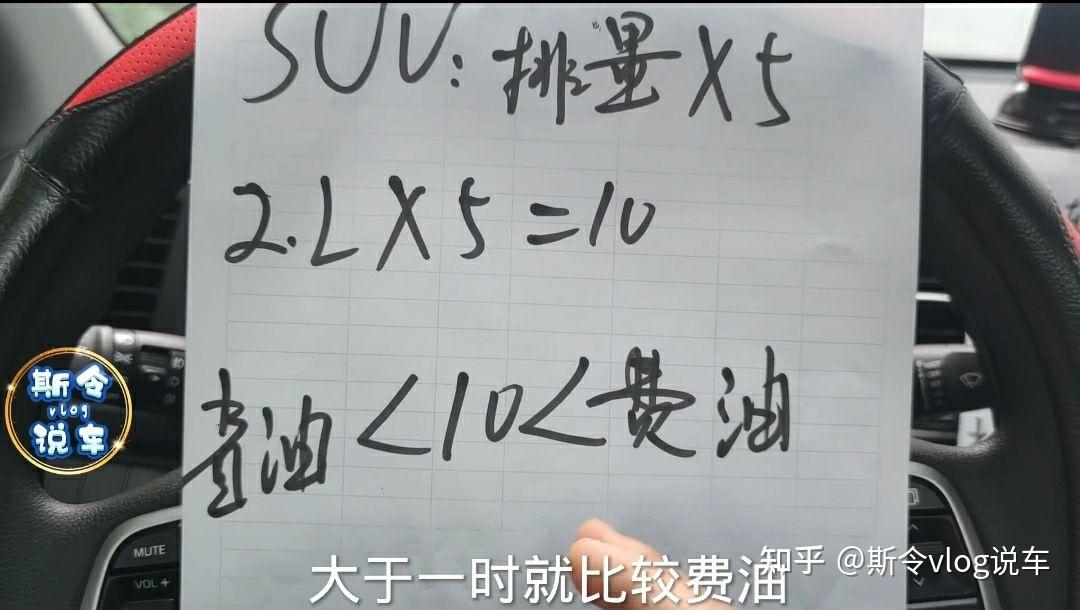 SUV:排量X5
2.LX5=10
省油<10<费油
斯令
vlog
说车
MUTE
VOL+
大于一时就比较费油
知乎 @斯令vlog说车